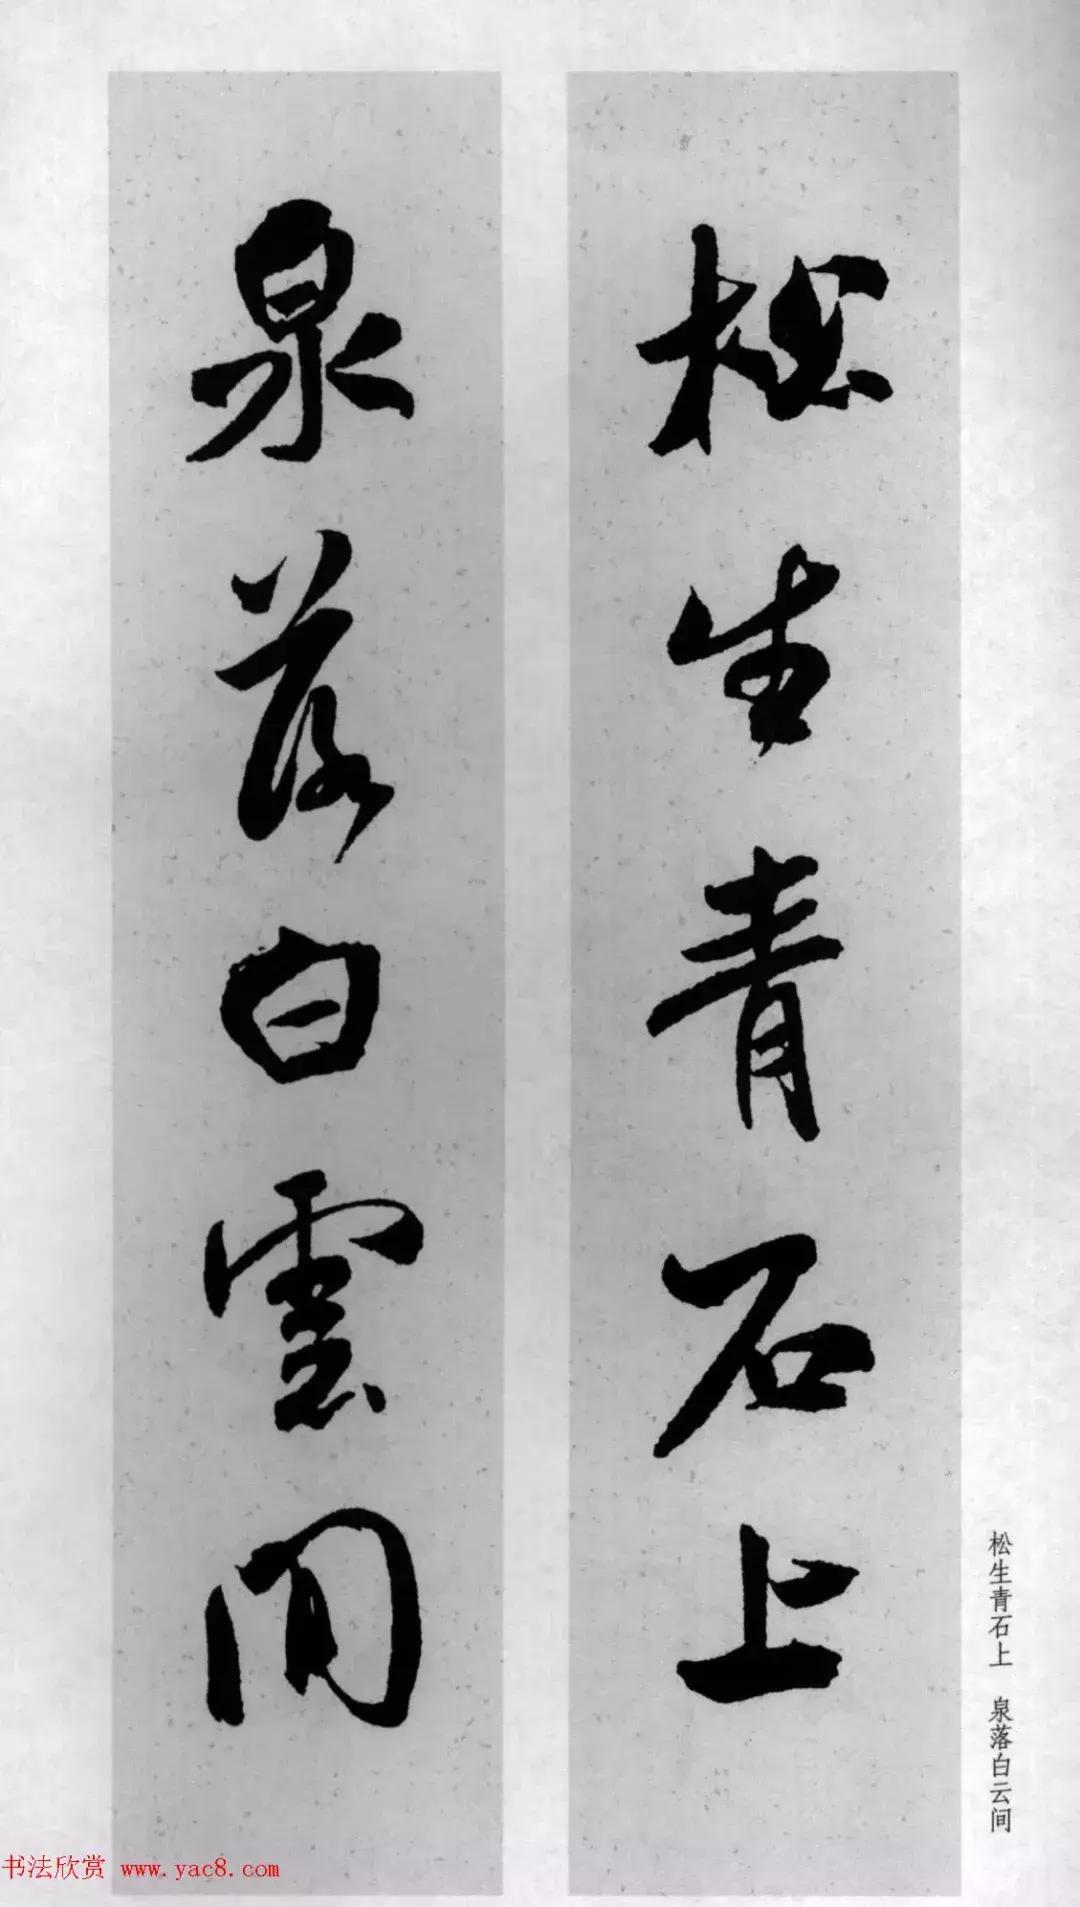 松生青石上
泉落白雲間
松生青石上 泉落白云间
书法欣赏 www.yac8.com